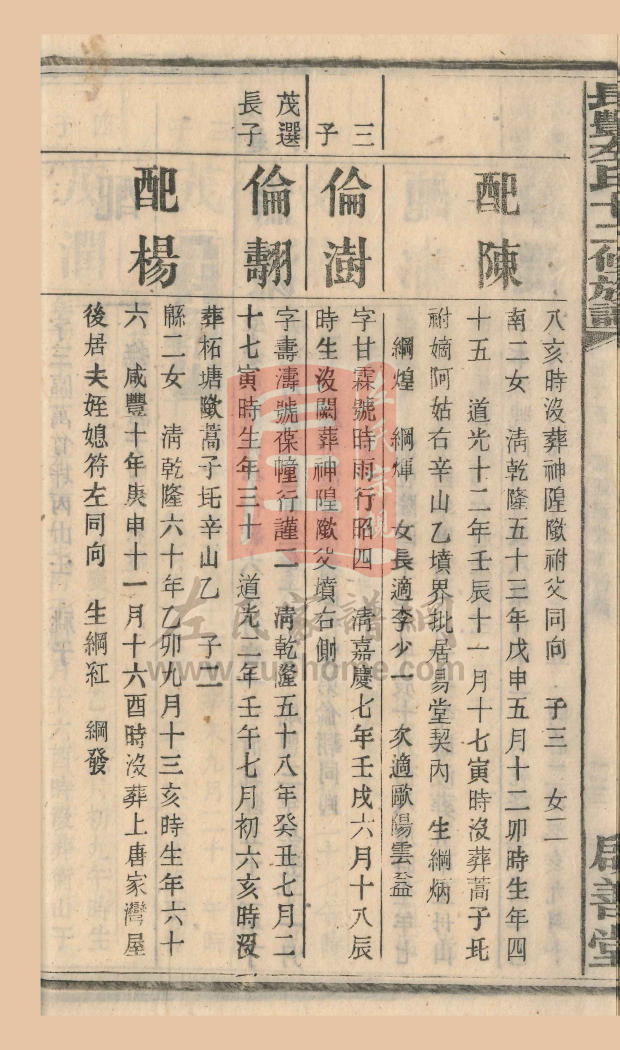 八亥時沒葬神隍歟祔父同向　子三　女二
配陳
南二女　清乾隆五十三年戊申五月十二卯時生年四
十五　道光十二年壬辰十一月十七寅時沒葬蒿子坉
祔嫡阿姑右辛山乙墳界批居易堂契內　生綱炳
綱煌　綱煇　女長適李少一　次適歐陽雲益
三子
倫澍
字甘霖號時雨行昭四　清嘉慶七年壬戌六月十八辰
時生沒闕葬神隍歟父墳右側
茂選長子
倫翿
字壽濤號葆幢行謹二　清乾隆五十八年癸丑七月二
十七寅時生年三十　道光二年壬午七月初六亥時沒
葬柘塘歟蒿子坉辛山乙　子二
配楊
緜二女　清乾隆六十年乙卯九月十三亥時生年六十
六　咸豐十年庚申十一月十六酉時沒葬上唐家灣屋
後居夫姪媳符左同向　生綱紅　綱發
啟善堂
左氏家譜網
www.zuohome.com